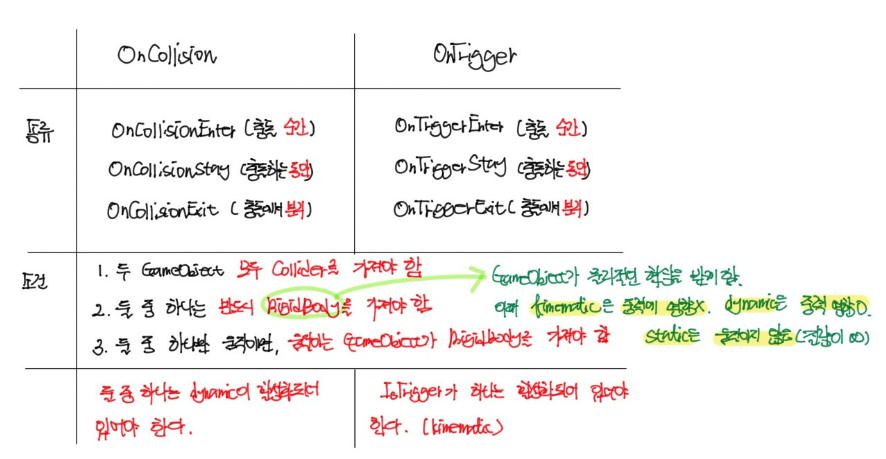 OnCollision OnTrigger
종류
OnCollisionEnter (충돌 순간) OnTriggerEnter (충돌 순간)
OnCollisionStay (충돌하는 동안) OnTriggerStay (충돌하는 동안)
OnCollisionExit (충돌에서 분리) OnTriggerExit (충돌에서 분리)
조건
1. 두 GameObject 모두 Collider를 가져야 함
GameObject가 물리적인 현상을 받게 함.
2. 둘 중 하나는 반드시 RigidBody를 가져야 함
이때 kinematic은 중력에 영향X. dynamic은 중력 영향O.
3. 둘 중 하나만 움직이면, 움직이는 GameObject가 RigidBody를 가져야 함
static은 움직이지 않음 (질량이 ∞)
둘 중 하나는 dynamic이 활성화되어 IsTrigger가 하나는 활성화되어 있어야
있어야 한다. 한다. (kinematic)